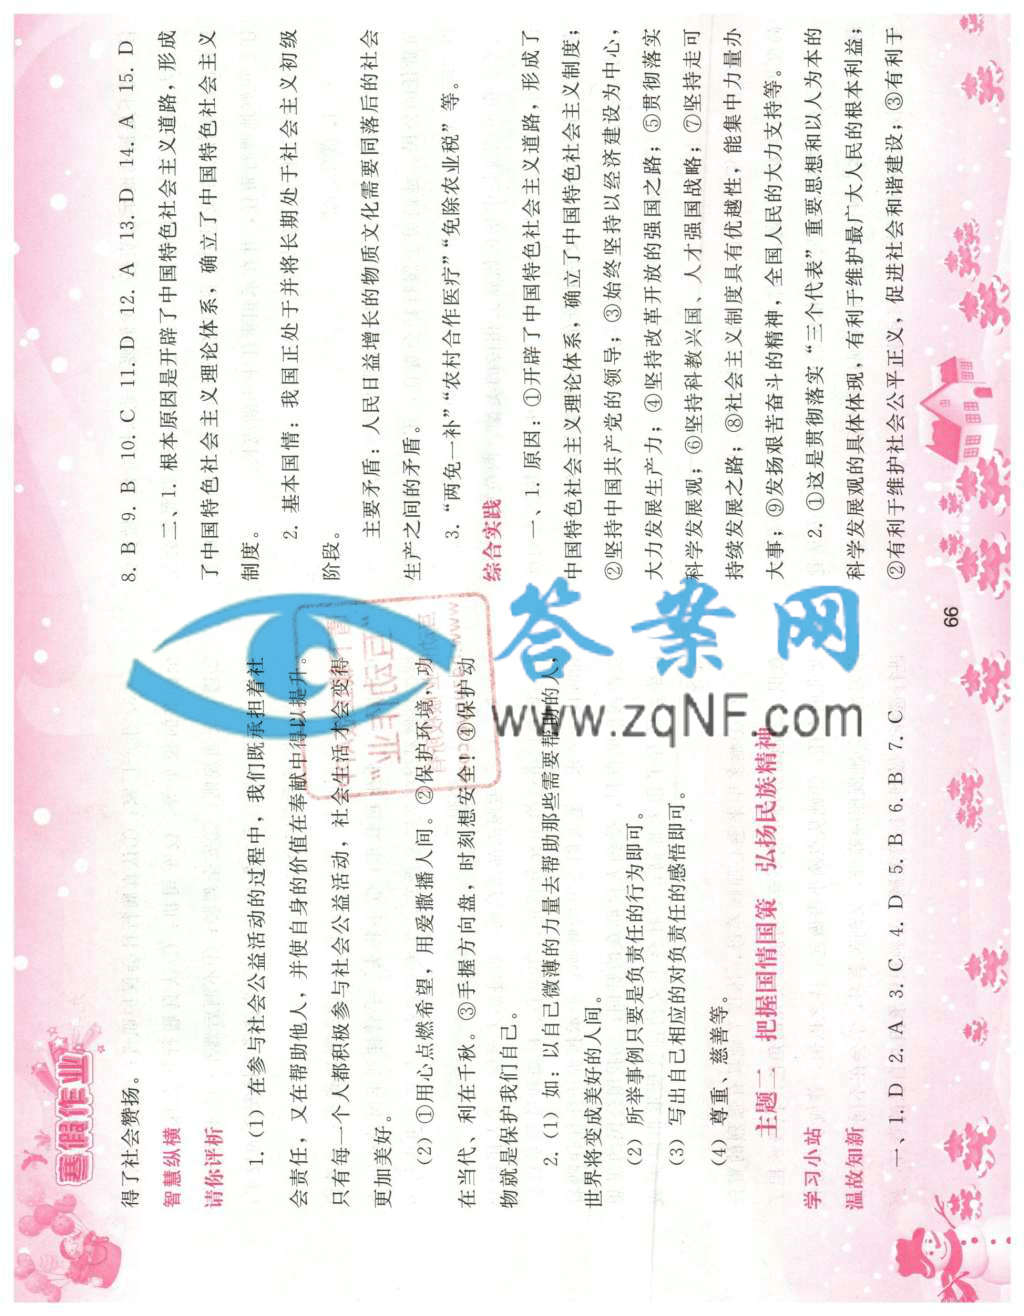 寒假作业
得了社会赞扬。
智慧纵横
请你评析
1. (1) 在参与社会公益活动的过程中，我们既承担着社
会责任，又在帮助他人，并使自身的价值在奉献中得以提升。
只有每一个人都积极参与社会公益活动，社会生活才会变得
更加美好。
(2) ①用心点燃希望，用爱撒播人间。②保护环境，功
在当代、利在千秋。③手握方向盘，时刻想安全！④保护动
物就是保护我们自己。
2. (1) 如：以自己微薄的力量去帮助那些需要帮助的人，
世界将变成美好的人间。
(2) 所举事例只要是负责任的行为即可。
(3) 写出自己相应的对负责任的感悟即可。
(4) 尊重、慈善等。
主题二 把握国情国策 弘扬民族精神
学习小站
温故知新
一、1. D 2. A 3. C 4. D 5. B 6. B 7. C
8. B 9. B 10. C 11. D 12. A 13. D 14. A 15. D
二、1. 根本原因是开辟了中国特色社会主义道路，形成
了中国特色社会主义理论体系，确立了中国特色社会主义
制度。
2. 基本国情：我国正处于并将长期处于社会主义初级
阶段。
主要矛盾：人民日益增长的物质文化需要同落后的社会
生产之间的矛盾。
3. “两免一补”“农村合作医疗”“免除农业税”等。
综合实践
一、1. 原因：①开辟了中国特色社会主义道路，形成了
中国特色社会主义理论体系，确立了中国特色社会主义制度；
②坚持中国共产党的领导；③始终坚持以经济建设为中心，
大力发展生产力；④坚持改革开放的强国之路；⑤贯彻落实
科学发展观；⑥坚持科教兴国、人才强国战略；⑦坚持走可
持续发展之路；⑧社会主义制度具有优越性，能集中力量办
大事；⑨发扬艰苦奋斗的精神，全国人民的大力支持等。
2. ①这是贯彻落实“三个代表”重要思想和以人为本的
科学发展观的具体体现，有利于维护最广大人民的根本利益；
②有利于维护社会公平正义，促进社会和谐建设；③有利于
66
答案网
www.zqNF.com